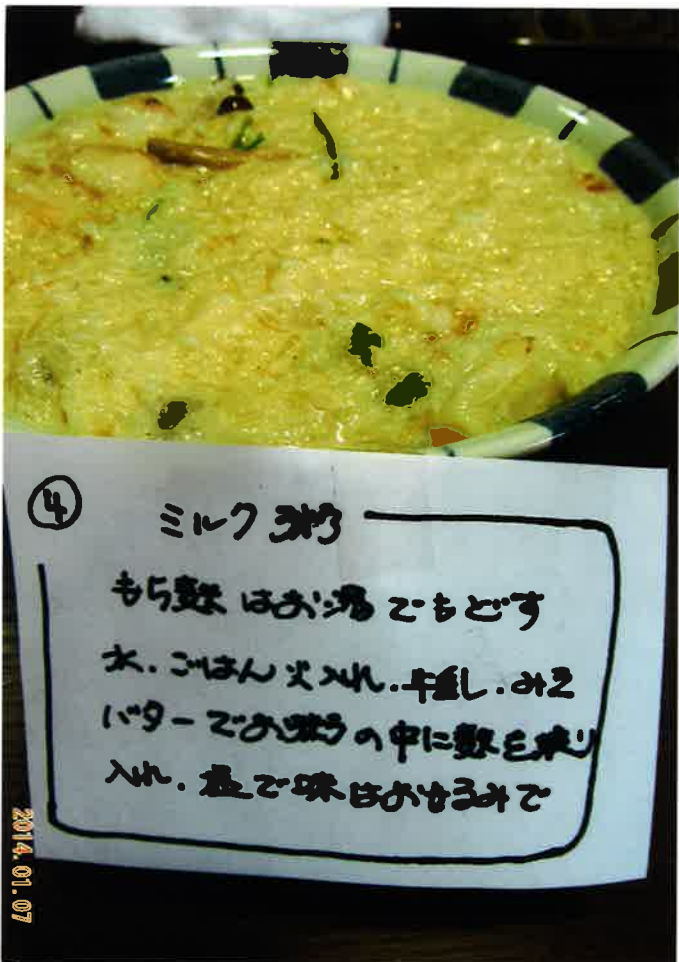 ④ ミルク粥
もち麩はお湯でもどす
水.ごはん火入れ.牛乳し.みそ
バターでお粥の中に麩を
入れ.塩で味はお好みで
2014.01.07